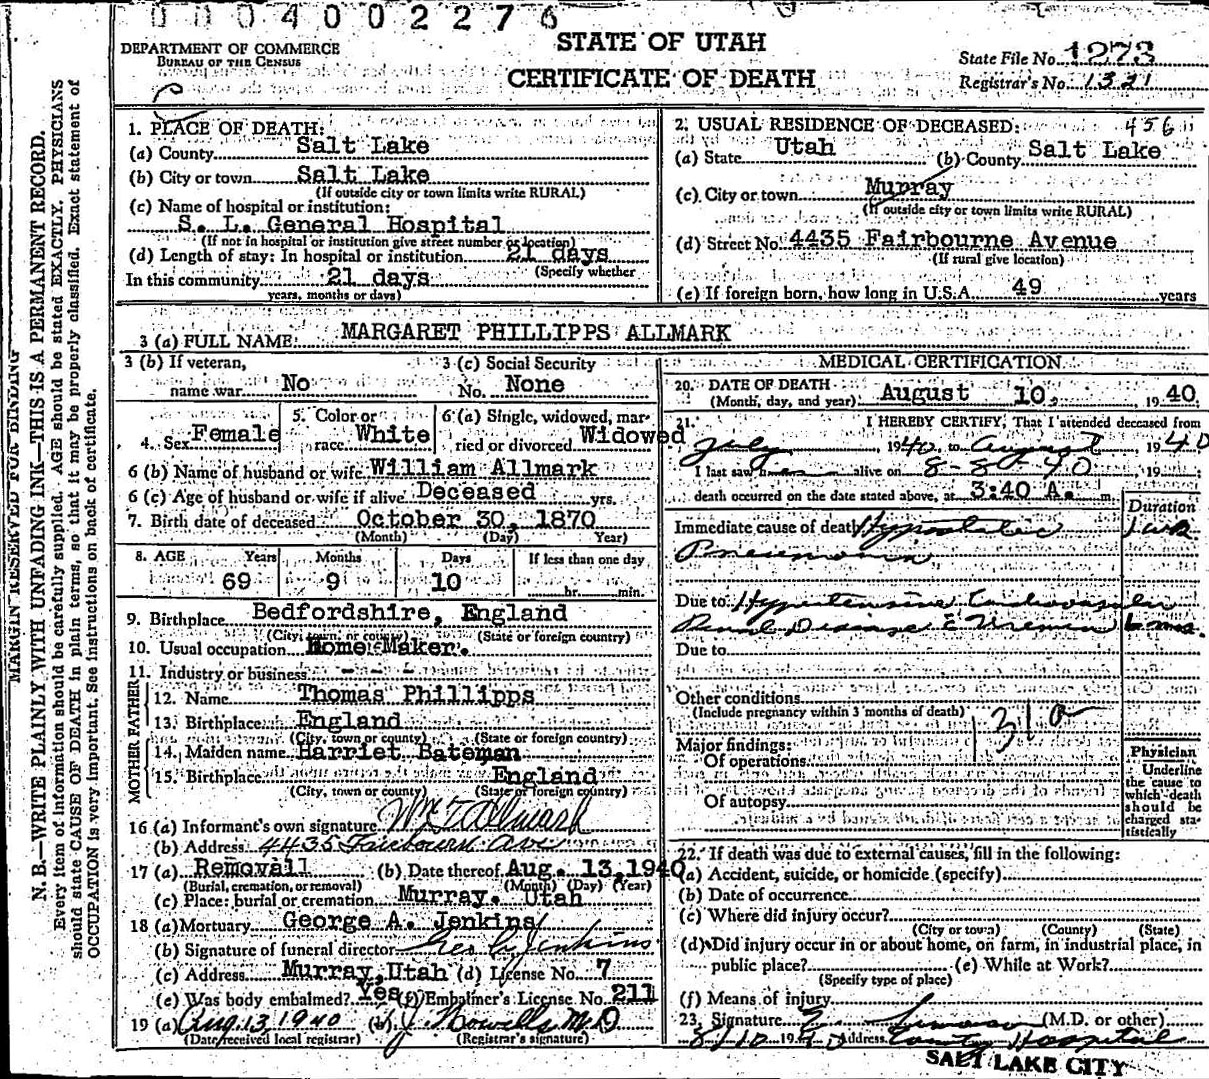 0004002276
DEPARTMENT OF COMMERCE
BUREAU OF THE CENSUS
STATE OF UTAH
CERTIFICATE OF DEATH
State File No. 1273
Registrar's No. 1321
MARGIN RESERVED FOR BINDING
N. B.—WRITE PLAINLY WITH UNFADING INK—THIS IS A PERMANENT RECORD.
Every item of information should be carefully supplied. AGE should be stated EXACTLY. PHYSICIANS
should state CAUSE OF DEATH in plain terms, so that it may be properly classified. Exact statement of
OCCUPATION is very important. See instructions on back of certificate.
1. PLACE OF DEATH:
(a) County Salt Lake
(b) City or town Salt Lake
(If outside city or town limits write RURAL)
(c) Name of hospital or institution:
S. L. General Hospital
(If not in hospital or institution give street number or location)
(d) Length of stay: In hospital or institution 21 days
(Specify whether
In this community 21 days
years, months or days)
2. USUAL RESIDENCE OF DECEASED: 456
(a) State Utah (b) County Salt Lake
(c) City or town Murray
(If outside city or town limits write RURAL)
(d) Street No. 4435 Fairbourne Avenue
(If rural give location)
(e) If foreign born, how long in U.S.A. 49 years
3 (a) FULL NAME: MARGARET PHILLIPPS ALLMARK
3 (b) If veteran,
name war No
3 (c) Social Security
No. None
4. Sex Female
5. Color or
race White
6 (a) Single, widowed, mar-
ried or divorced Widowed
6 (b) Name of husband or wife William Allmark
6 (c) Age of husband or wife if alive Deceased yrs.
7. Birth date of deceased October 30, 1870
(Month) (Day) Year)
8. AGE Years Months Days If less than one day
69 9 10 hr. min.
9. Birthplace Bedfordshire, England
(City, town, or county) (State or foreign country)
10. Usual occupation Home Maker.
11. Industry or business - - - -
FATHER
12. Name Thomas Phillipps
13. Birthplace England
(City, town or county) (State or foreign country)
MOTHER
14. Maiden name Harriet Bateman
15. Birthplace England
(City, town or county) (State or foreign country)
16 (a) Informant's own signature Wm T Allmark
(b) Address 4435 Fairbourn Ave
17 (a) Removall (b) Date thereof Aug. 13, 1940
(Burial, cremation, or removal) (Month) (Day) (Year)
(c) Place: burial or cremation Murray. Utah
18 (a) Mortuary George A. Jenkins
(b) Signature of funeral director Geo A Jenkins
(c) Address Murray, Utah (d) License No. 7
(e) Was body embalmed? Yes (f) Embalmer's License No. 211
19 (a) Aug. 13, 1940 (b) J. Howells M.D
(Date received local registrar) (Registrar's signature)
MEDICAL CERTIFICATION
20. DATE OF DEATH
(Month, day, and year) August 10, 1940
21. I HEREBY CERTIFY, That I attended deceased from
July 1940, to August 1940
I last saw her alive on 8-80-40 19
death occurred on the date stated above, at 3:40 A. m.
Duration
Immediate cause of death Hypostatic 1 wk
Pneumonia
Due to Hypertensive Cardiovascular
Renal Disease c Uremia 6 mos.
Due to
Other conditions
(Include pregnancy within 3 months of death) 131a
Major findings:
Of operations
Of autopsy
Physician
Underline
the cause to
which death
should be
charged sta-
tistically
22. If death was due to external causes, fill in the following:
(a) Accident, suicide, or homicide (specify)
(b) Date of occurrence
(c) Where did injury occur?
(City or town) (County) (State)
(d) Did injury occur in or about home, on farm, in industrial place, in
public place? (e) While at Work?
(Specify type of place)
(f) Means of injury
23. Signature (M.D. or other)
8/10 1940 Address County Hospital
SALT LAKE CITY